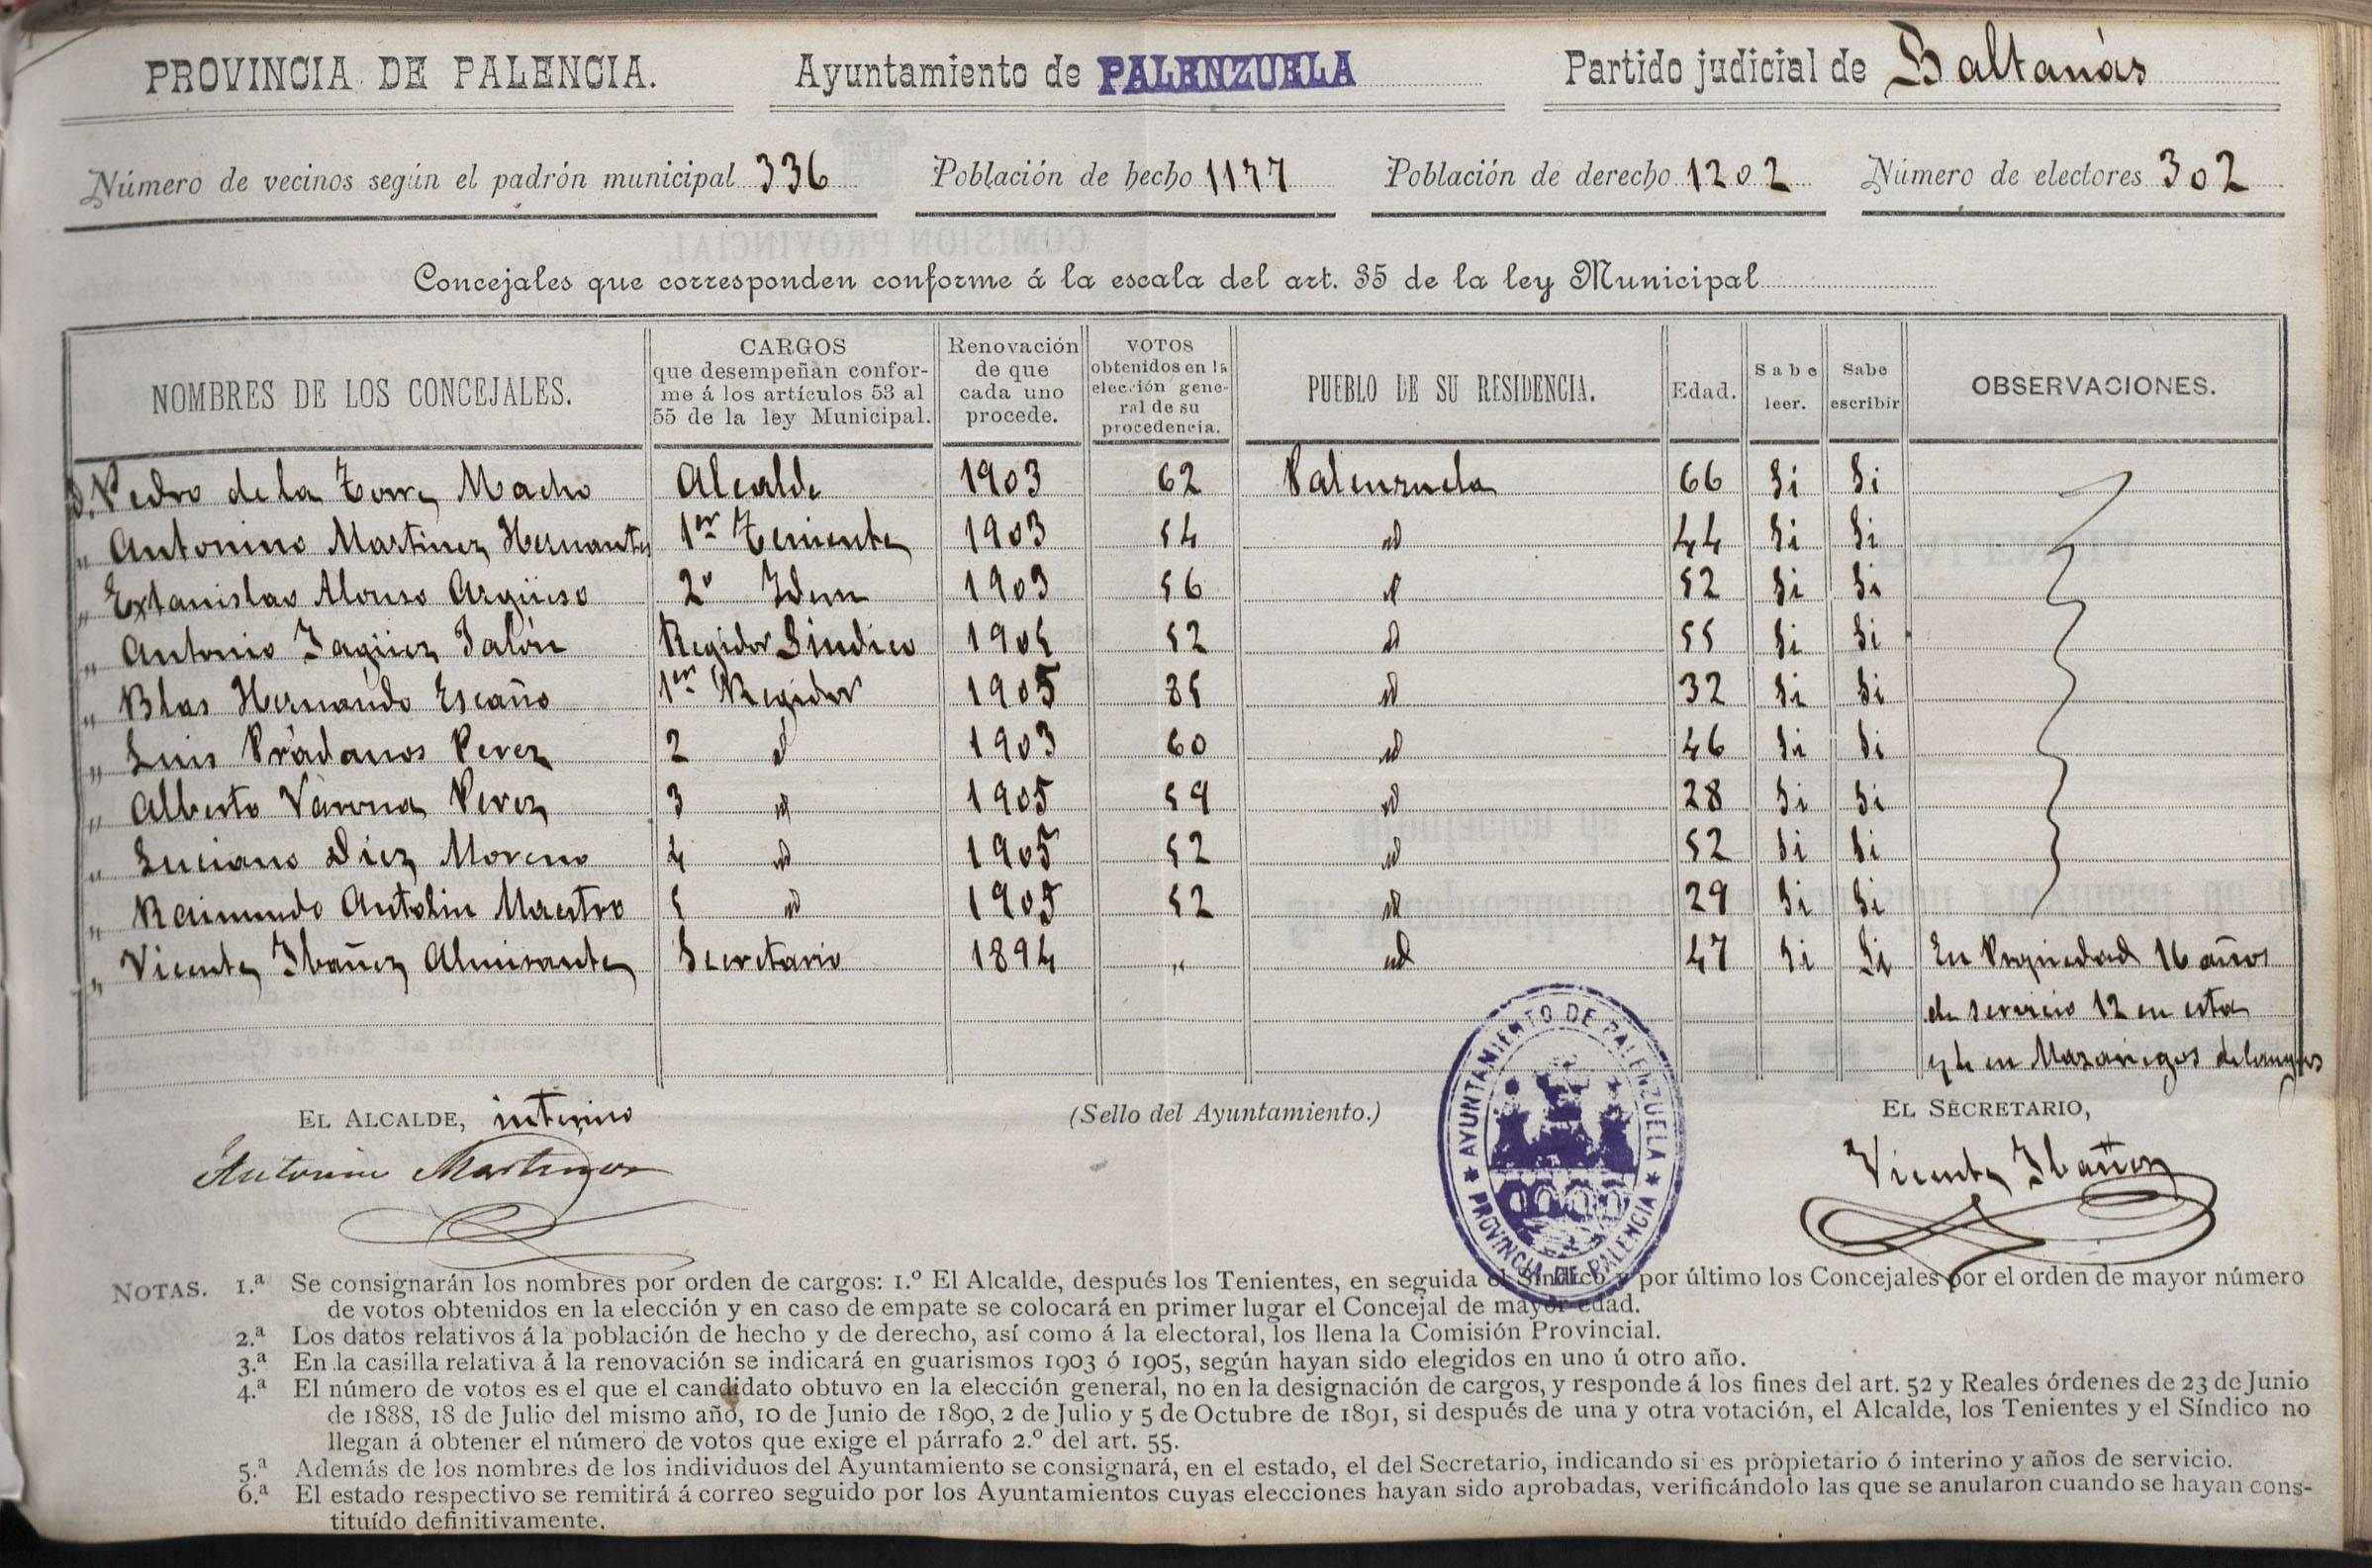 PROVINCIA DE PALENCIA. Ayuntamiento de PALENZUELA Partido judicial de Baltanás
Número de vecinos según el padrón municipal 336 Población de hecho 1177 Población de derecho 1202 Número de electores 302
Concejales que corresponden conforme á la escala del art. 35 de la ley Municipal
NOMBRES DE LOS CONCEJALES.
CARGOS
que desempeñan confor-
me á los artículos 53 al
55 de la ley Municipal.
Renovación
de que
cada uno
procede.
VOTOS
obtenidos en la
elección gene-
ral de su
procedencia.
PUEBLO DE SU RESIDENCIA.
Edad.
Sabe
leer.
Sabe
escribir
OBSERVACIONES.
D. Pedro de la Torre Macho Alcalde 1903 62 Palenzuela 66 Si Si
„ Antonino Martinez Hernantes 1er Teniente 1903 54 id 44 Si Si
„ Extanislao Alonso Argüeso 2º Idem 1903 56 id 52 Si Si
„ Antonio Jagüez Jalón Regidor Sindico 1905 52 id 55 Si Si
„ Blas Hernando Escaño 1er Regidor 1905 85 id 32 Si Si
„ Luis Prádanos Perez 2 id 1903 60 id 46 Si Si
„ Alberto Varona Perez 3 id 1905 59 id 28 Si Si
„ Luciano Diez Moreno 4 id 1905 52 id 52 Si Si
„ Raimundo Antolin Maestro 5 id 1905 52 id 29 Si Si
„ Vicente Ibañez Almirante Secretario 1894 „ id 47 Si Si En Propiedad 16 años
de servicio 12 en esta
y 4 en Mazariegos
EL ALCALDE, interino
Antonino Martinez
(Sello del Ayuntamiento.)
AYUNTAMIENTO DE PALENZUELA
PROVINCIA DE PALENCIA
EL SECRETARIO,
Vicente Ibañez
NOTAS. 1.ª Se consignarán los nombres por orden de cargos: 1.º El Alcalde, después los Tenientes, en seguida el Síndico y por último los Concejales por el orden de mayor número
de votos obtenidos en la elección y en caso de empate se colocará en primer lugar el Concejal de mayor edad.
2.ª Los datos relativos á la población de hecho y de derecho, así como á la electoral, los llena la Comisión Provincial.
3.ª En la casilla relativa á la renovación se indicará en guarismos 1903 ó 1905, según hayan sido elegidos en uno ú otro año.
4.ª El número de votos es el que el candidato obtuvo en la elección general, no en la designación de cargos, y responde á los fines del art. 52 y Reales órdenes de 23 de Junio
de 1888, 18 de Julio del mismo año, 10 de Junio de 1890, 2 de Julio y 5 de Octubre de 1891, si después de una y otra votación, el Alcalde, los Tenientes y el Síndico no
llegan á obtener el número de votos que exige el párrafo 2.º del art. 55.
5.ª Además de los nombres de los individuos del Ayuntamiento se consignará, en el estado, el del Secretario, indicando si es propietario ó interino y años de servicio.
6.ª El estado respectivo se remitirá á correo seguido por los Ayuntamientos cuyas elecciones hayan sido aprobadas, verificándolo las que se anularon cuando se hayan cons-
tituído definitivamente.